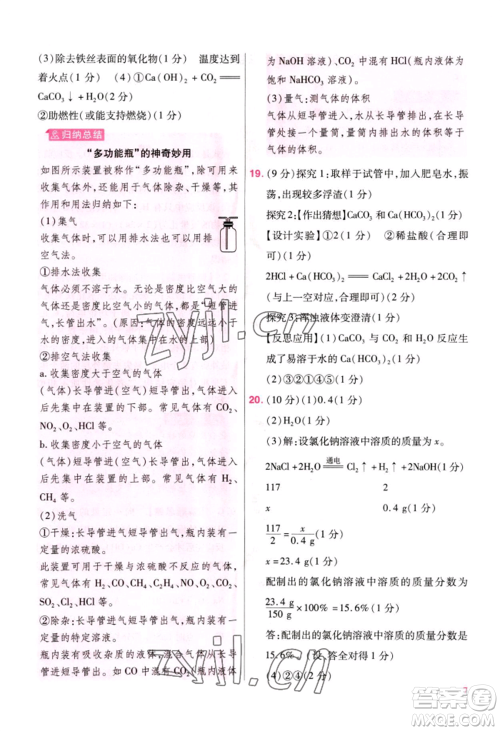 (3)除去铁丝表面的氧化物(1分)　温度达到
着火点(1分)　(4)①Ca(OH)₂ + CO₂ ══
CaCO₃↓ + H₂O(1分)
②助燃性(或能支持燃烧)(1分)
归纳总结
“多功能瓶”的神奇妙用
如图所示装置被称作“多功能瓶”,可以用来
收集气体,也可以用于气体除杂、干燥等,其
作用和用法归纳如下:
(1)集气
收集气体时,可以用排水法,也可以用排
空气法。
①排水法收集
气体必须不溶于水。无论是密度比空气大
的气体,还是密度比空气小的气体,都是“短
进长出”。(原因:气体的密度比水小,气体
进入装置后,处于水的上方,因此气体从短
导管进,水从长导管出。)
②排空气法收集
a. 收集密度大于空气的气体
(气体)长导管进(空气)短导管出,气体进入
后先集中在装置下方。常见气体有 CO₂、
NO₂、HCl 等。
b. 收集密度小于空气的气体
(气体)短导管进(空气)长导管出,气体进入
后先集中在装置上方。常见气体有 H₂、CH₄、
NH₃ 等。
(2)洗气
①干燥:长导管进气短导管出气,瓶内装有一
定量的浓硫酸。
此装置可干燥一些中性和酸性气体。常见
的有 H₂、CO、CH₄、O₂、N₂、CO₂、SO₂、HCl 等。
②除杂:长导管进气短导管出气,瓶内装有一
定量的液体。
瓶内装有吸收杂质的液体,常见的除杂有
CO 中混有 CO₂、H₂ 中混有 HCl(瓶内液体
为 NaOH 溶液)、CO₂ 中混有 HCl(瓶内液体为饱
和 NaHCO₃ 溶液)等。
(3)量气:测气体的体积
气体从短导管进,水从长导管出,气体的体
积等于排出水的体积,水的体积用与长导
管连接的量筒量出。
19. (9分)探究1:取样于试管中,加入肥皂水,振
荡,出现较多浮渣(1分)
探究2:【作出猜想】CaCO₃ 和 Ca(HCO₃)₂(1分)
【设计实验】①2(1分)　②稀盐酸(合理即
可)(1分)
2HCl + Ca(HCO₃)₂ ══ CaCl₂ + 2H₂O + 2CO₂↑
(与上一空对应,合理即可)(1分)
探究3:浑浊液体变澄清(1分)
【反应应用】(1)CaCO₃ 和 CO₂、H₂O 反应生
成了易溶于水的 Ca(HCO₃)₂(1分)
(2)②①③④⑤(1分)
20. (10分)(1)0.4(1分)
(2)H₂O(1分)
(3)解:设氯化钠溶液中溶质的质量为 x。
2NaCl + 2H₂O 通电══ H₂↑ + Cl₂↑ + 2NaOH(1分)
117　2
x　0.4 g(1分)
117/2 = x/0.4 g(1分)
x = 23.4 g(1分)
配制出的氯化钠溶液中溶质的质量分数为
23.4 g/150 g × 100% = 15.6%(1分)
答:配制出的氯化钠溶液中溶质的质量分数为
15.6%。(设、答全对得1分)
(4)②④(2分)
zyjl.cn
zyjl.cn
答案圈